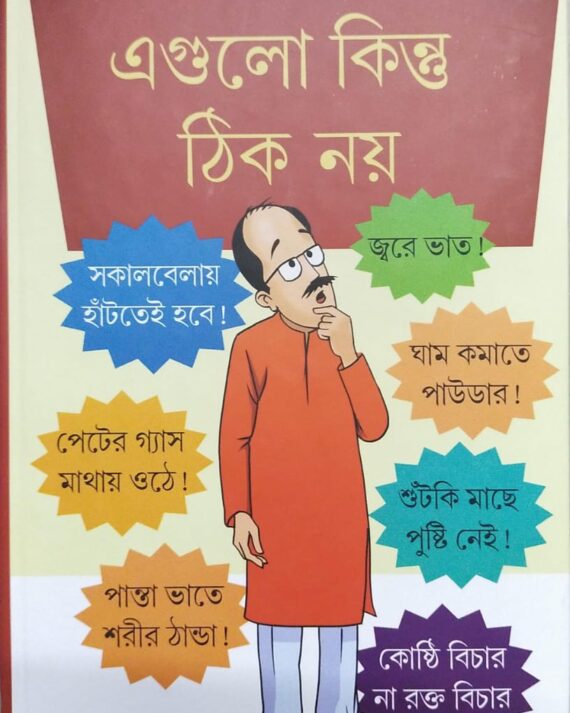 এগুলো কিন্তু
ঠিক নয়
জ্বরে ভাত!
সকালবেলায়
হাঁটতেই হবে!
ঘাম কমাতে
পাউডার!
পেটের গ্যাস
মাথায় ওঠে!
শুঁটকি মাছে
পুষ্টি নেই!
পান্তা ভাতে
শরীর ঠান্ডা!
কোষ্ঠি বিচার
না রক্ত বিচার